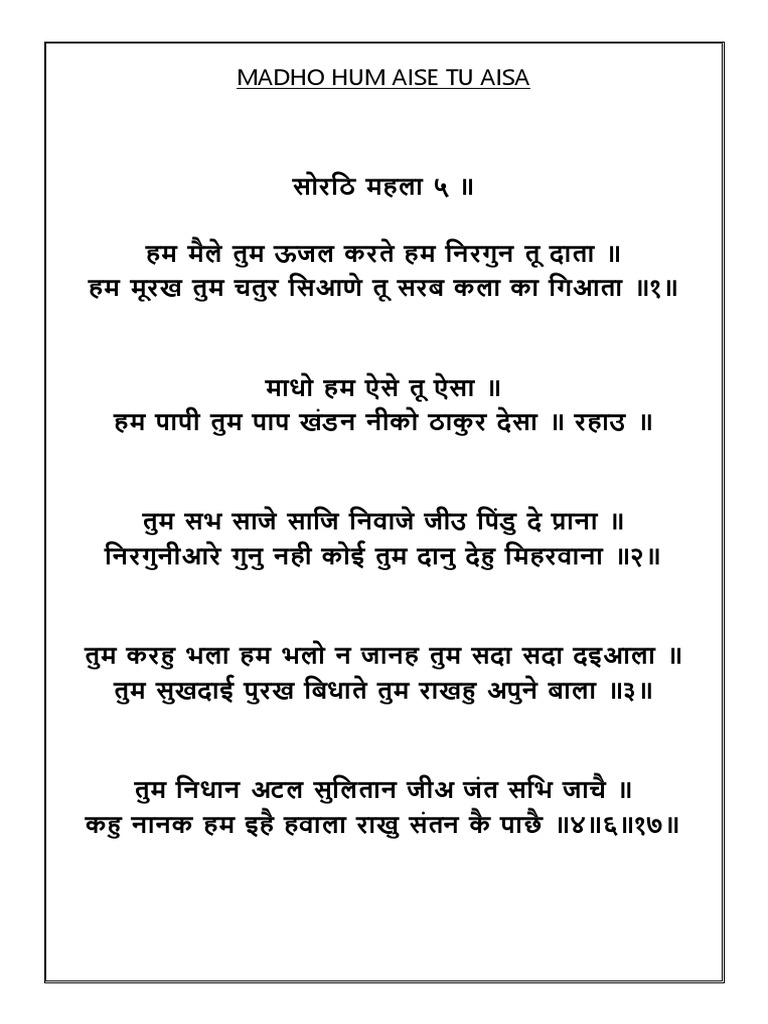 MADHO HUM AISE TU AISA
सोरठि महला ५ ॥
हम मैले तुम ऊजल करते हम निरगुन तू दाता ॥
हम मूरख तुम चतुर सिआणे तू सरब कला का गिआता ॥१॥
माधो हम ऐसे तू ऐसा ॥
हम पापी तुम पाप खंडन नीको ठाकुर देसा ॥ रहाउ ॥
तुम सभ साजे साजि निवाजे जीउ पिंडु दे प्राना ॥
निरगुनीआरे गुनु नही कोई तुम दानु देहु मिहरवाना ॥२॥
तुम करहु भला हम भलो न जानह तुम सदा सदा दइआला ॥
तुम सुखदाई पुरख बिधाते तुम राखहु अपुने बाला ॥३॥
तुम निधान अटल सुलितान जीअ जंत सभि जाचै ॥
कहु नानक हम इहै हवाला राखु संतन कै पाछै ॥४॥६॥१७॥